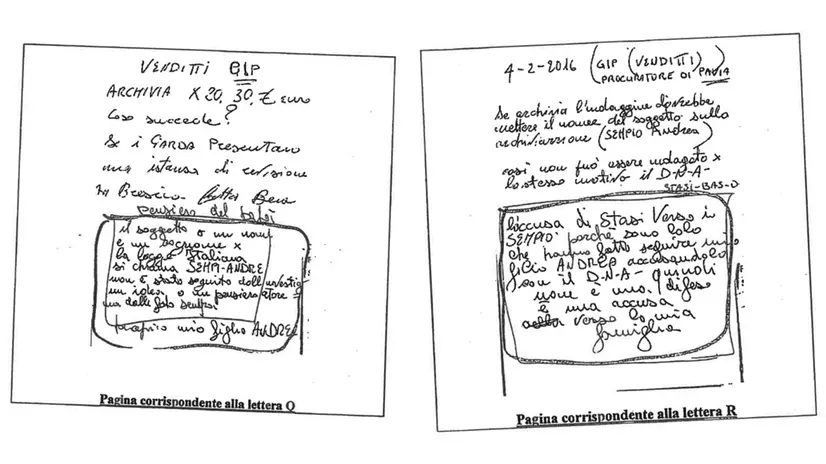 VENDITTI GIP
ARCHIVIA X 20, 30, € euro
Cosa succede?
Se i GARDA PRESENTANO
una istanza di revisione
in Brescia Bene
pensiero del
il soggetto o un
è un cognome x
la legge Italiana
si chiama SEMPI-ANDRE
non è stato seguito dall'investig
un idea o un pensiero
ma dalle foto
proprio mio figlio ANDREA
Pagina corrispondente alla lettera Q
4-2-2016 (GIP (VENDITTI)
PROCURATORE DI PAVIA
Se archivia l'indagine dovrebbe
mettere il nome del soggetto sulla
archiviazione (SEMPIO Andrea)
così non può essere indagato x
lo stesso motivo il D-N-A-
STASI-BAS-D
l'accusa di Stasi Verso i
SEMPIO: perché sono loro
che hanno fatto seguire mio
figlio ANDREA accusandolo
con il D-N-A- quindi
non è una difesa
è una accusa
verso la mia
famiglia
Pagina corrispondente alla lettera R